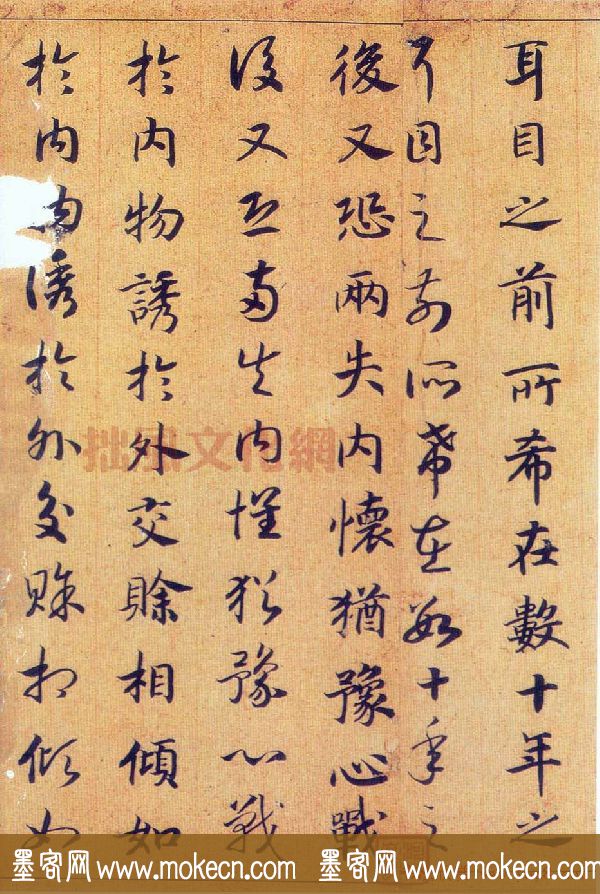 耳目之前所希在數十年之
耳目之前所希在數十年之
後又恐兩失內懷猶豫心戰
後又恐兩失內懷猶豫心戰
於內物誘於外交賒相傾如
於內物誘於外交賒相傾如
拙風文化網
墨客网 www.mokecn.com 墨客网 www.mokecn.com